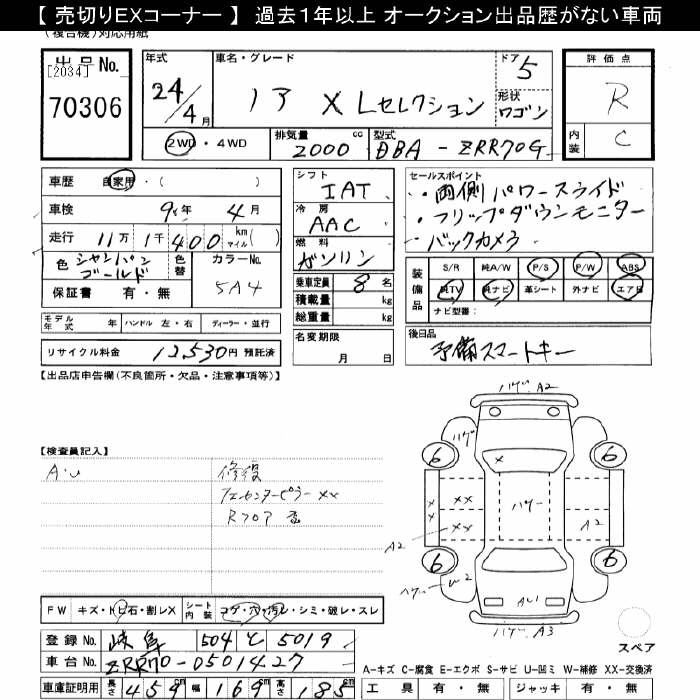 【 売切りEXコーナー 】 過去1年以上 オークション出品歴がない車両
(複合機)対応用紙
出品 No.
[2034]
70306
年式
24/4月
車名・グレード
ノア X Lセレクション
ドア 5
形状 ワゴン
評価点
R
内装 C
2WD・4WD
排気量 2000 cc
型式 DBA - ZRR70G
車歴 自家用・( )
車検 9年 4月
走行 11万 1千 400 km マイル( )
色 シャンパンゴールド
色替
カラーNo. 5A4
保証書 有・無
シフト IAT
冷房 AAC
燃料 ガソリン
乗車定員 8 名
積載量 kg
総重量 kg
セールスポイント
・両側パワースライド
・フリップダウンモニター
・バックカメラ
装備品
S/R 純A/W P/S P/W ABS
純TV 純ナビ 革シート 外ナビ エアB
ナビ型番:
モデル年式 年 ハンドル 左・右 ディーラー・並行
名変期限 月 日
後日品
予備スマートキー
リサイクル料金 12,530円 預託済
【出品店申告欄(不良箇所・欠品・注意事項等)】
【検査員記入】
A・U
修復
フェ センターピラー XX
Rフロア
ハゲ A2
ハゲ
6
6
X
X
X
XX
XX
ハゲ
A2
A2
6
6
W2
AU
ハゲ A3
スペア
FW キズ・トビ石・割レX
シート内装 コゲ・穴・汚レ・シミ・破レ・スレ
登録 No. 岐阜 504 5019
車台 No. ZRR70-0501427
車庫証明用 長さ 459 cm 幅 169 cm 高さ 185 cm
A−キズ C−腐食 E−エクボ S−サビ U−凹ミ W−補修 XX−交換済
工具 有・無 ジャッキ 有・無